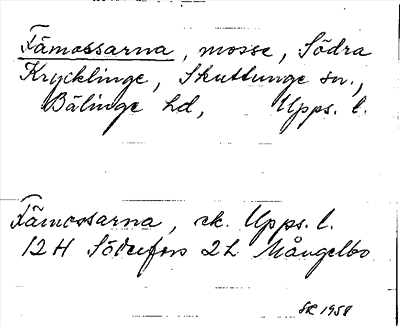 Fämossarna, mosse, Södra
Krycklinge, Skuttunge sn.,
Bälinge hd, Upps. l.
Fämossarna, ek. Upps. l.
12 H Söderfors 2 h Mångelbo
SK 1958